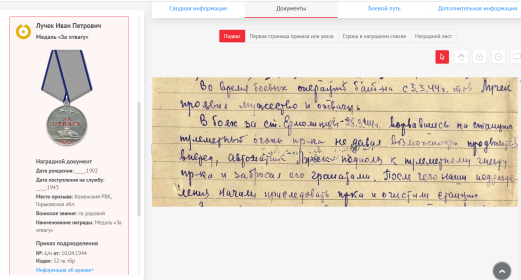 Сводная информация
Документы
Боевой путь
Дополнительная информация
Лучек Иван Петрович
Медаль «За отвагу»
Подвиг
Первая страница приказа или указа
Строка в наградном списке
Наградной лист
ЗА ОТВАГУ
СССР
Наградной документ
Дата рождения: __.__.1902
Дата поступления на службу:
__.__.1943
Место призыва:
РВК,
Горьковская обл.
Воинское звание: гв. рядовой
Наименование награды: Медаль «За
отвагу»
Приказ подразделения
№: 6/н от: 10.04.1944
Издан: 52 гв. тбр
Информация об архиве+
Во время боевых операций бат-на с 3.3.44г. тов Лучек
проявил мужество и отвагу.
В боях за ст. 28.3.44г. ворвавшись на станцию
пулеметный огонь пр-ка не давал возможность продвигаться
вперед, автоматчик Лучек подполз к пулеметному гнезду
пр-ка и забросал его гранатами. После чего наши подразде-
ления начали преследовать пр-ка и очистили станцию